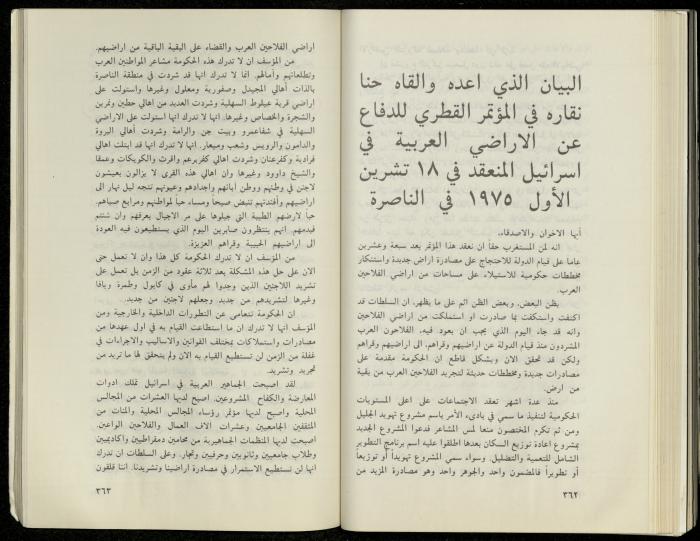 البيان الذي اعده والقاه حنا
نقاره في المؤتمر القطري للدفاع
عن الاراضي العربية في
اسرائيل المنعقد في ١٨ تشرين
الأول ١٩٧٥ في الناصرة
أيها الاخوان والاصدقاء،
انه لمن المستغرب حقا ان نعقد هذا المؤتمر بعد سبعة وعشرين
عاما على قيام الدولة للاحتجاج على مصادرة اراض جديدة واستنكار
مخططات حكومية للاستيلاء على مساحات من اراضي الفلاحين
العرب.
يظن البعض، وبعض الظن اثم على ما يظهر، ان السلطات قد
اكتفت واستكفت بما صادرت او استملكت من اراضي الفلاحين
وانه قد جاء اليوم الذي يجب ان يعود فيه، الفلاحون العرب
المشردون منذ قيام الدولة عن اراضيهم وقراهم، الى اراضيهم وقراهم
ولكن قد تحقق الان وبشكل قاطع ان الحكومة مقدمة على
مصادرات جديدة ومخططات حديثة لتجريد الفلاحين العرب من بقية
من ارض.
منذ عدة اشهر تعقد الاجتماعات على اعلى المستويات
الحكومية لتنفيذ ما سمي في بادىء الأمر باسم مشروع تهويد الجليل
ومن ثم تكرم المختصون منعا لمس المشاعر فدعوا المشروع الجديد
بمشروع اعادة توزيع السكان بعدها اطلقوا عليه اسم برنامج التطوير
الشامل للتعمية والتضليل. وسواء سمي المشروع تهويداً أو توزيعاً
أو تطويراً فالمضمون واحد والجوهر واحد وهو مصادرة المزيد من
٣٦٢
اراضي الفلاحين العرب والقضاء على البقية الباقية من اراضيهم.
من المؤسف ان لا تدرك هذه الحكومة مشاعر المواطنين العرب
وتطلعاتهم وآمالهم. انما لا تدرك انها قد شردت في منطقة الناصرة
بالذات أهالي المجيدل وصفورية ومعلول وغيرها واستولت على
اراضي قرية عيلوط السهلية وشردت العديد من اهالي حطين ونمرين
والشجرة والخصاص وغيرها. انها لا تدرك انها استولت على الاراضي
السهلية في شفاعمرو وبيت جن والرامة وشردت أهالي البروة
والدامون والرويس وشعب وميعار. انها لا تدرك انها قد ابتلت اهالي
فرادية وكفرعنان وشردت اهالي كفربرعم واقرث والكويكات وعمقا
والشيخ داوود وغيرها وان اهالي هذه القرى لا يزالون يعيشون
لاجئن في وطنهم ووطن آبائهم واجدادهم وعيونهم تتجه ليل نهار الى
اراضيهم وأفئدتهم تنبض صبحا ومساء حبا لمواطنهم ومرابع صباهم.
حبا لارضهم الطيبة التي جبلوها على مر الاجيال بعرقهم وان شئتم
فبدمهم. انهم ينتظرون صابرين اليوم الذي يستطيعون فيه العودة
الى اراضيهم الحبيبة وقراهم العزيزة.
من المؤسف ان لا تدرك الحكومة كل هذا وان لا تعمل حتى
الان على حل هذه المشكلة بعد ثلاثة عقود من الزمن بل تعمل على
تشريد اللاجئين الذين وجدوا لهم مأوى في كابول وطمرة ويافا
وغيرها لتشريدهم من جديد وجعلهم لاجئين من جديد.
ان الحكومة تتعامى عن التطورات الداخلية والخارجية ومن
المؤسف انها لا تدرك ان ما استطاعت القيام به في اول عهدها من
مصادرات واستملاكات بمختلف القوانين والاساليب والاجراءات في
غفلة من الزمن لن تستطيع القيام به الان ولم يتحقق لها ما تريد من
تجريد وتشريد.
لقد اصبحت الجماهير العربية في اسرائيل تملك ادوات
المعارضة والكفاح المشروعين. اصبح لديها العشرات من المجالس
المحلية واصبح لديها مؤتمر رؤساء المجالس المحلية والمئات من
المثقفين الجامعيين وعشرات الاف العمال والفلاحين الواعين.
اصبحت لديها المنظمات الجماهيرية من محامين دمقراطيين واكاديميين
وطلاب جامعيين وثانويين وحرفيين وتجار. وعلى السلطات ان تدرك
انها لن تستطيع الاستمرار في مصادرة اراضينا وتشريدنا. اننا قلقون
٣٦٣